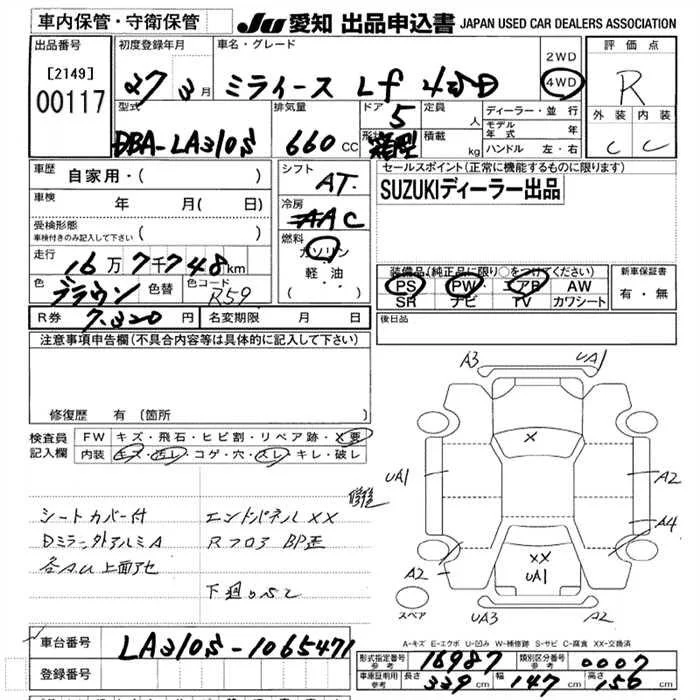 車内保管・守衛保管
JU 愛知 出品申込書 JAPAN USED CAR DEALERS ASSOCIATION
出品番号
[2149]
00117
初度登録年月
27 3月
車名・グレード
ミライース Lf 4WD
2WD
4WD
評価点
R
外装 内装
C C
型式
DBA-LA310S
排気量
660 CC
ドア 5
形状 箱型
定員 人
積載 kg
ディーラー・並行
モデル年式 年
ハンドル 左・右
車歴 自家用・( )
車検 年 月( 日)
受検形態
車検付きのみ記入して下さい ( )
走行 16万7千748km
色 ブラウン 色替 色コード R59
R券 7,320円 名変期限 月 日
シフト AT
冷房 AAC
燃料 ガソリン
軽・油
( ・ )
セールスポイント(正常に機能するものに限ります)
SUZUKIディーラー出品
装備品(純正品に限り○をつけてください)
PS PW エアB AW
SR ナビ TV カワシート
新車保証書
有・無
後日品
注意事項申告欄(不具合内容等は具体的に記入して下さい)
修復歴 有 (箇所 )
検査員記入欄
FW キズ・飛石・ヒビ割・リペア跡・X要
内装 キズ・汚レ・コゲ・穴・スレ・キレ・破レ
シートカバー付
Dミラー外アルミA
各A.U 上面アセ
エンドパネルXX
Rフロア BP歪
修復
A3 UA1
X
UA1 A2
A4
XX
UA1
A2
スペア UA3 A2
A-キズ E-エクボ U-凹み W-補修跡 S-サビ C-腐食 XX-交換済
車台番号 LA310S-1065471
登録番号
形式指定番号 参考 16987
類別区分番号 参考 0007
車庫証明用 参考 長さ 339cm 幅 147cm 高さ 156cm